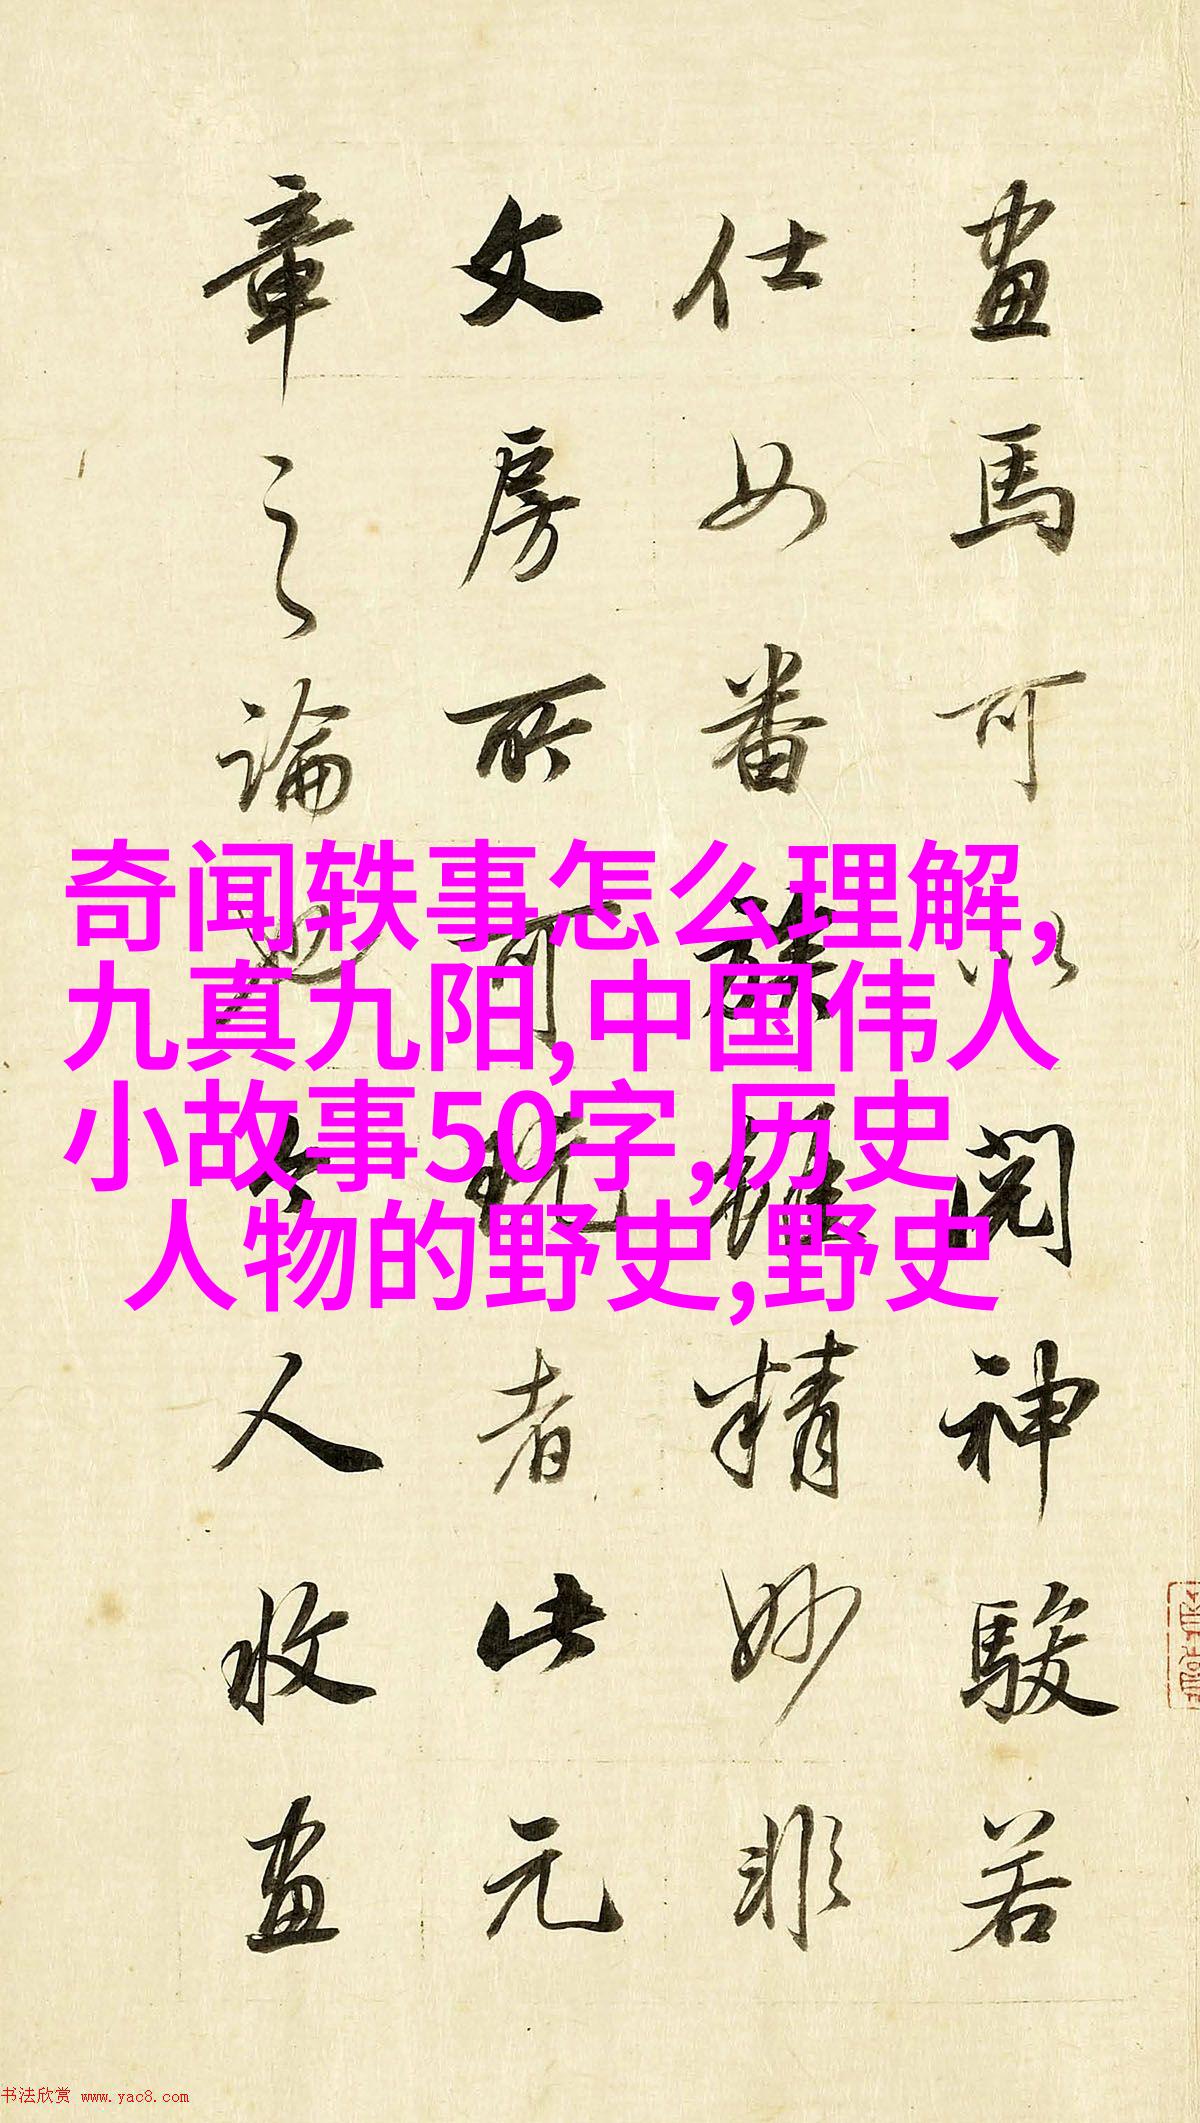 畫馬可以閱神駿若
仕女番族雖精妙非
文房所可玩者此元
章之論也今人收畫
奇闻轶事怎么理解,
九真九阳,中国伟人
小故事50字,历史
人物的野史,野史
书法欣赏 www.yac8.com